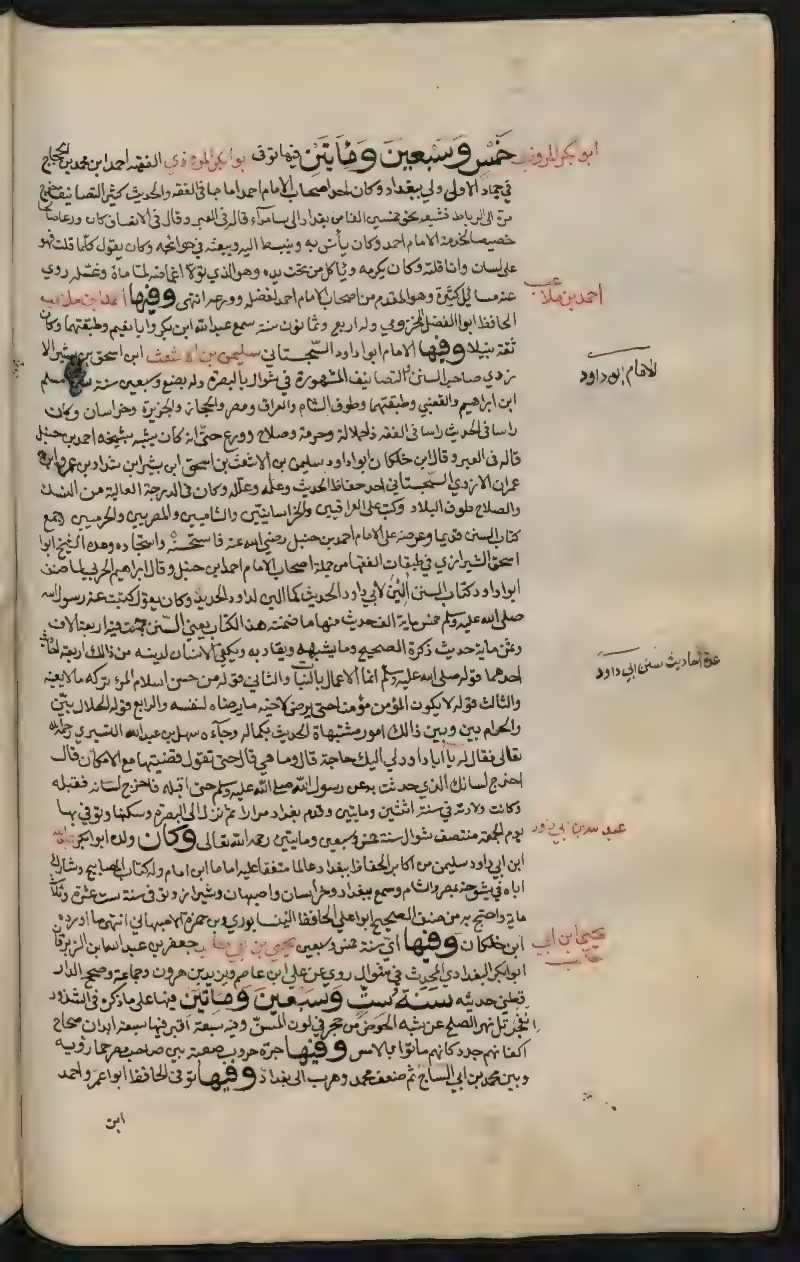 خمس وسبعين ومايتين فيها توفى ابو بكر المروذي الفقيه احمد ابن محمد بن الحجاج
في جماد الاولى ولي ببغداد وكان احد اصحاب الامام احمد اماما في الفقه والحديث كثير التصانيف خرج
مرة الى الرباط فشيعه نحو خمسين الفا من بغداد الى سامراء قاله في العبر وقال في الانصاف كان ورعا صالحا
خصيصا بخدمة الامام احمد وكان يأنس به وينبسط اليه ويبعثه في حوائجه وكان يقول كلما قلت فهو
على لساني وانا قلته وكان يكرمه وياكل من تحت يده وهو الذي تولا اغماضه لما مات وغسله روي
عنه مسائل كثيرة وهو المقدم من اصحاب الامام احمد لفضله وورعه انتهى وفيها احمد ابن ملاعب
الحافظ ابو الفضل المخرمي وله اربع وثمانون سنة سمع عبد الله ابن بكر وابا نعيم وطبقتهما وكان
ثقة نبيلا وفيها الامام ابو داود السجستاني سليمن بن الاشعث ابن اسحق بن بشير الا
زدي صاحب السنن والتصانيف المشهورة في شوال بالبصرة وله بضع وسبعين سنة سمع مسلم
ابن ابراهيم والقعنبي وطبقتهما وطوف الشام والعراق ومصر والحجاز والجزيرة وخراسان وكان
راسا في الحديث راسا في الفقه ذا جلالة وحرمة وصلاح وورع حتى انه كان يشبه بشيخه احمد بن حنبل
قاله في العبر وقال ابن خلكان ابو داود سليمن بن الاشعث بن اسحق ابن بشير ابن شداد بن عمرو ابن
عمران الازدي السجستاني احد حفاظ الحديث وعلمه وعلله وكان في الدرجة العالية من النسك
والصلاح طوف البلاد وكتب على العراقيين والخراسانيين والشاميين والمصريين والحرميين وجمع
كتاب السنن قديما وعرضه على الامام احمد بن حنبل رضي الله عنه فاستحسنه واستجاده وعده الشيخ ابو
اسحق الشيرازي في طبقات الفقها من جملة اصحاب الامام احمد ابن حنبل وقال ابراهيم الحربي لما صنف
ابو داود كتاب السنن الين لابي داود الحديث كما الين لداود الحديد وكان يقول كتبت عن رسول الله
صلى الله عليه وسلم خمس ماية الف حديث منها ما ضمنته هذا الكتاب يعني السنن جمعت فيه اربعة الاف
وثمن ماية حديث ذكرة الصحيح وما يشبهه ويقاربه ويكفي الانسان لدينه من ذالك اربعة احاديث
احدهما قوله صلى الله عليه وسلم انما الاعمال بالنيات والثاني قوله من حسن اسلام المرء تركه ما لا يعنيه
والثالث قوله لا يكون المؤمن مؤمنا حتى يرضى لاخيه ما يرضاه لنفسه والرابع قوله الحلال بين
والحرام بين وبين ذالك امور مشتبهاة الحديث بكماله وجآءه سهل بن عبد الله التستري رحمه الله
تعالى فقال له يا ابا داود لي اليك حاجة قال وما هي قال حتى تقول قضيتها مع الامكان قال
اخرج لسانك الذي حدثت به عن رسول الله صلى الله عليه وسلم حتى اقبله فاخرج لسانه فقبله
وكانت ولادته في سنة اثنتين ومايتين وقدم بغداد مرارا ثم نزل الى البصرة وسكنها وتوفي بها
يوم الجمعة منتصف شوال سنة خمس وسبعين ومايتين رحمه الله تعالى وكان ولده ابو بكر عبد الله
ابن ابي داود سليمن من اكابر الحفاظ ببغداد عالما متفقا عليه اماما ابن امام وله كتاب المصابيح وشارك
اباه في شيوخه بمصر والشام وسمع ببغداد وخراسان واصبهان وشيراز وتوفى سنة ست عشرة وثلاث
ماية واحتج به من صنف الصحيح ابو علي الحافظ النيسابوري وبن حمزة الاصبهاني انتهى ما اورده
ابن خلكان وفيها اي سنة خمس وسبعين يحيى بن ابي طالب جعفر بن عبد الله ابن الزبرقان
ابو بكر البغدادي المحدث في شوال روي عن علي ابن عاصم ويزيد بن هرون وجماعة وصحح الدار
قطني حديثه سنة ست وسبعين ومايتين فيها على ما ذكره في الشذور
انفجر تل نهر الصلح عن شبه الحوض من حجر في لون المسن وفيه سبعة اقبر فيها سبعة ابدان صحاح
اكفانهم جدد كانهم ماتوا بالامس وفيها جرة حروب صعبة بين صاحب مصر خمارويه
وبين محمد بن ابي الساج ثم ضعف محمد وهرب الى بغداد وفيها توفى الحافظ ابو عمرو احمد
ابن
ابو بكر المروذي
احمد بن ملاعب
الامام ابو داود
عدة احاديث سنن ابي داود
عبد الله بن ابي داود
يحيى ابن ابي
طالب